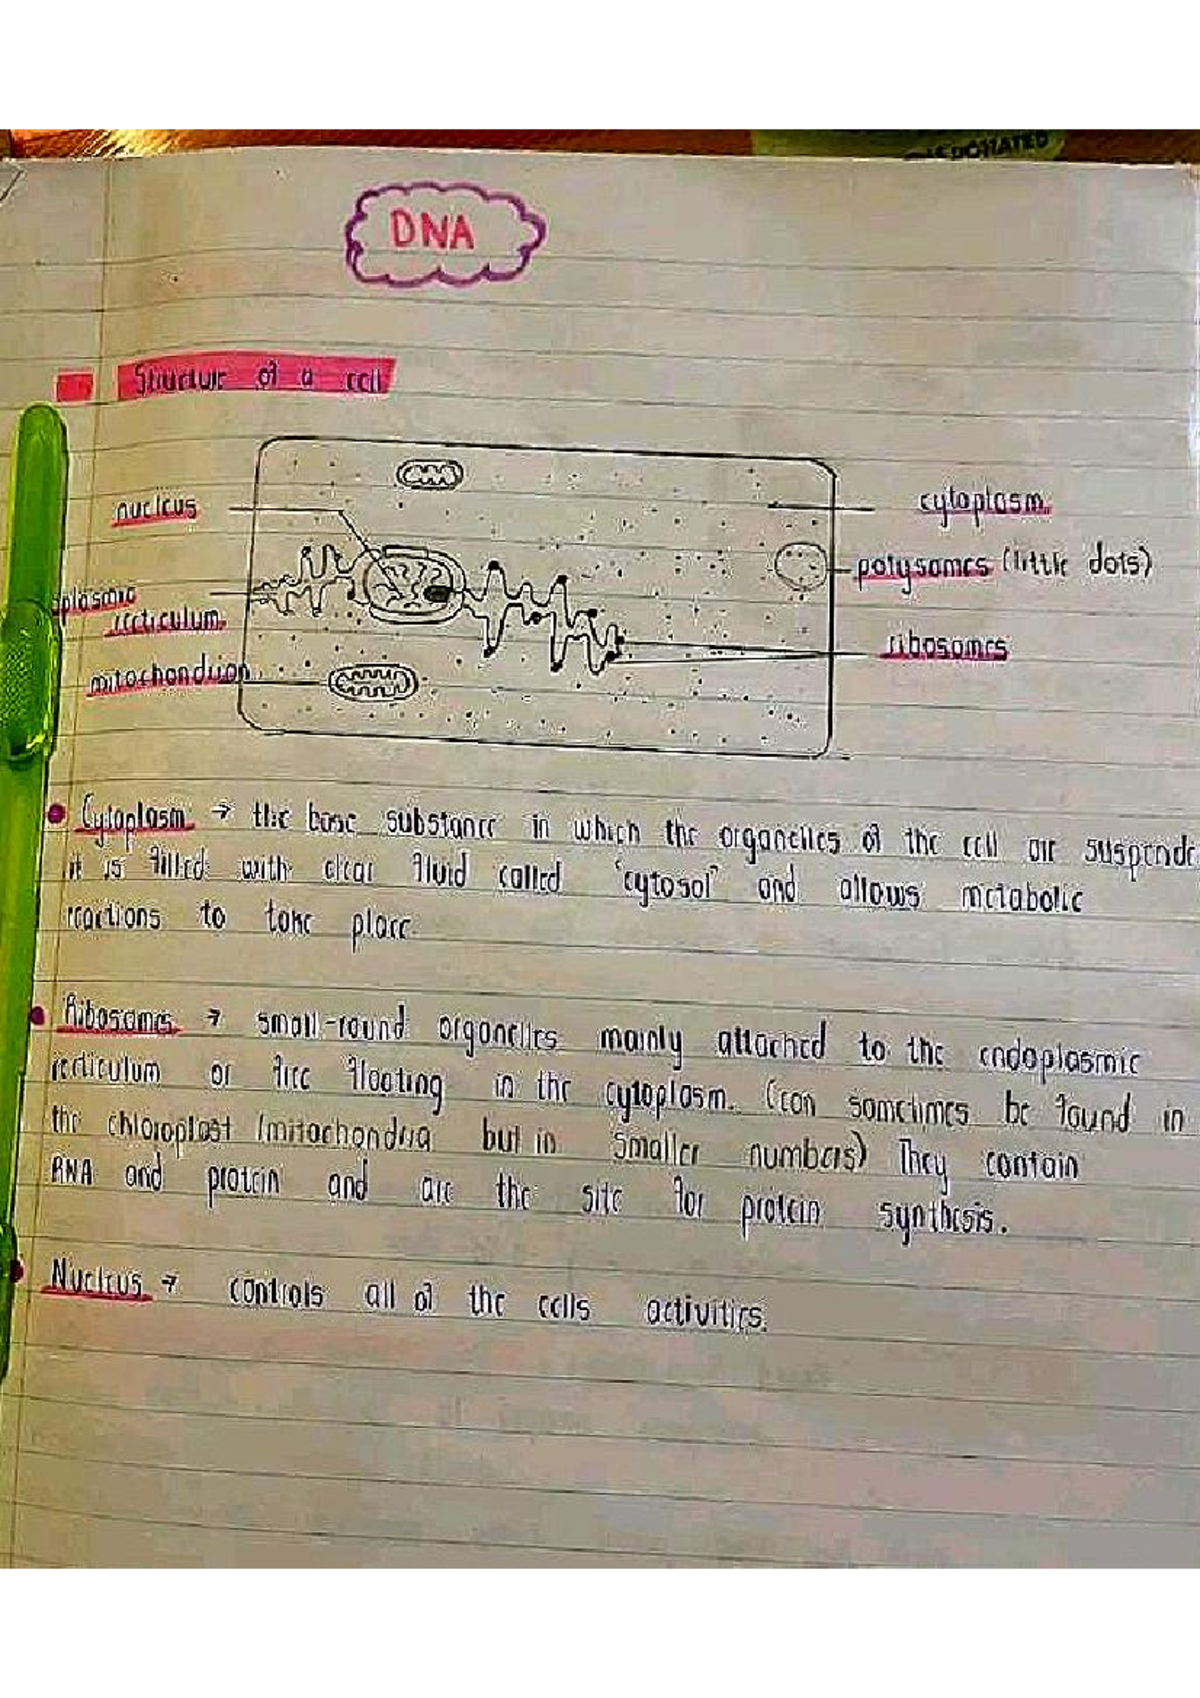 DNA
Structure of a cell
nucleus
cytoplasm
polysomes (little dots)
plasmic
reticulum
ribosomes
mitochondrion
Cytoplasm → the base substance in which the organelles of the cell are suspende
it is filled with clear fluid called 'cytosol' and allows metabolic
reactions to take place
Ribosomes → small-round organelles mainly attached to the endoplasmic
reticulum or free floating in the cytoplasm. (can sometimes be found in
the chloroplast /mitochondria but in smaller numbers) They contain
RNA and protein and are the site for protein synthesis.
Nucleus → controls all of the cells activities.